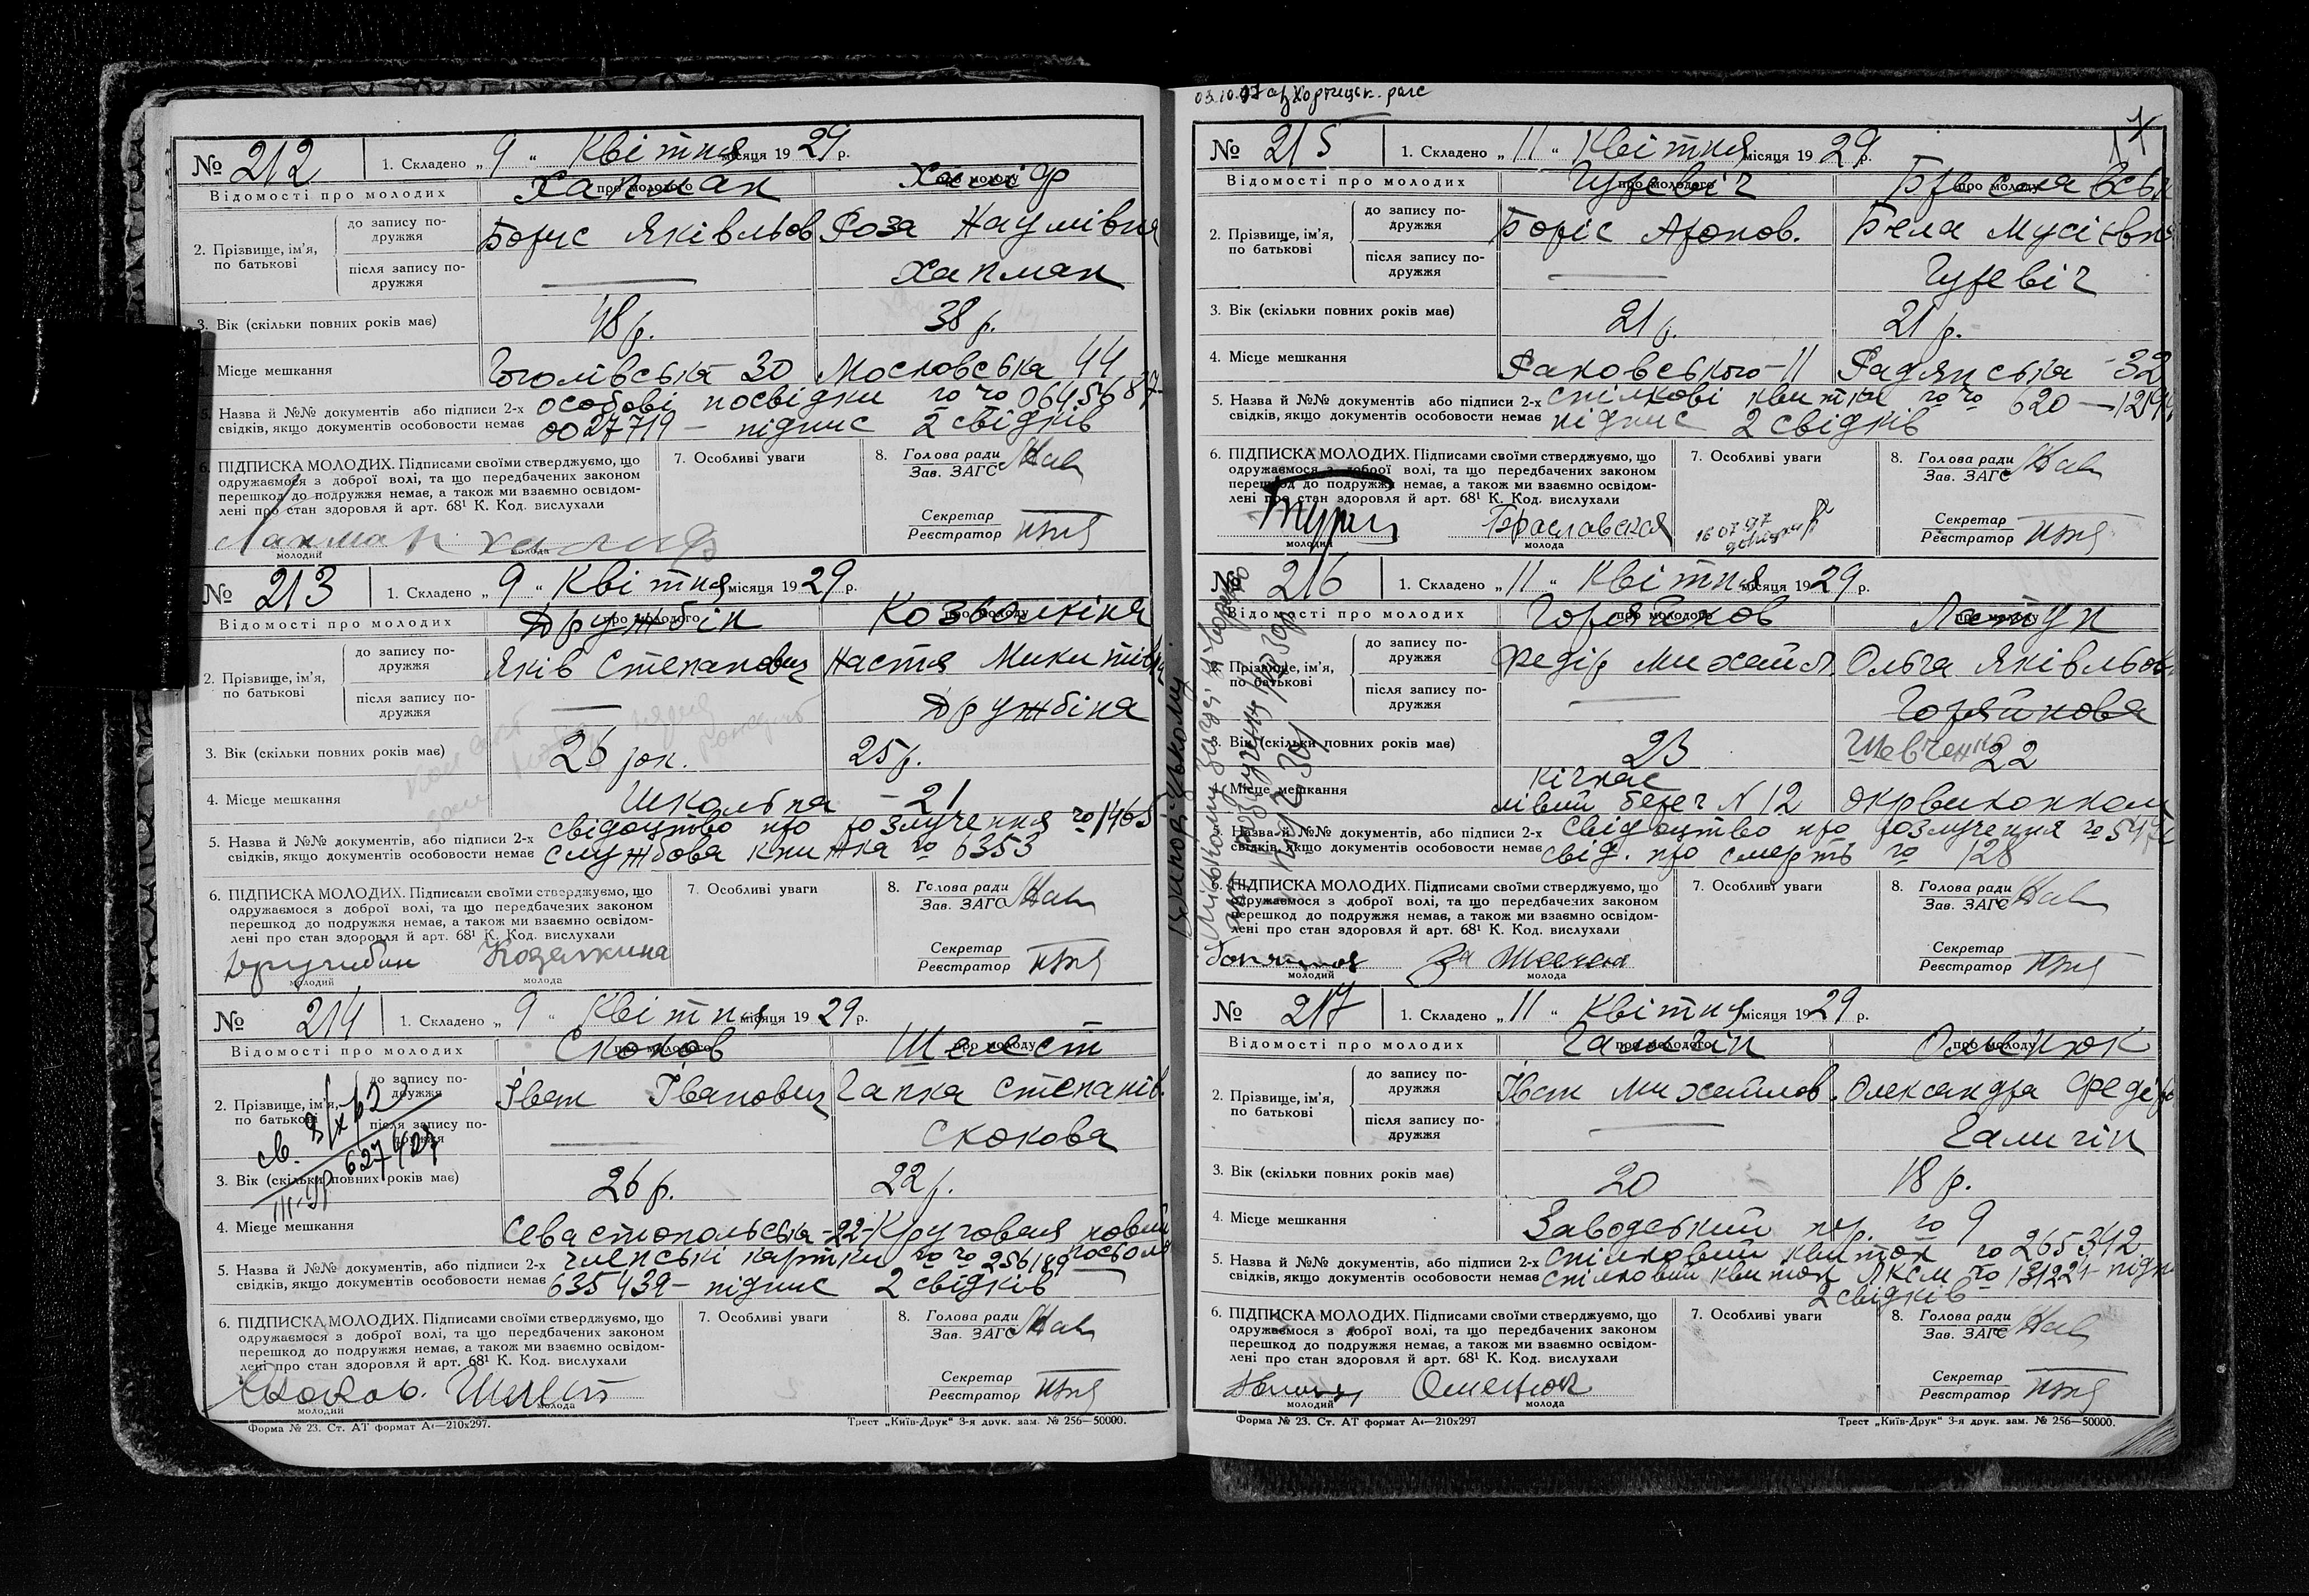 № 212 1. Складено „ 9 “ Квітня місяця 1929 р.
Відомості про молодих про молодого про молоду
Хапман
2. Прізвище, ім'я, по батькові
до запису подружжя
Борис Яківльов Роза Наумівна
після запису подружжя
Хапман
3. Вік (скільки повних років має) 48 р. 38 р.
4. Місце мешкання Гоголівська 30 Московська 44
5. Назва й №№ документів або підписи 2-х особові посвідки
свідків, якщо документів особовости немає 0027719 – підпис 2 свідків
6. ПІДПИСКА МОЛОДИХ. Підписами своїми стверджуємо, що
одружаємося з доброї волі, та що передбачених законом
перешкод до подружжя немає, а також ми взаємно освідом-
лені про стан здоровля й арт. 68¹ К. Код. вислухали
молодий молода
7. Особливі уваги
8. Голова ради
Зав. ЗАГС
Секретар
Реєстратор
№ 213 1. Складено „ 9 “ Квітня місяця 1929 р.
Відомості про молодих про молодого про молоду
Дружбін
2. Прізвище, ім'я, по батькові
до запису подружжя
Яків Степанович Настя Микитівна
після запису подружжя
Дружбіна
3. Вік (скільки повних років має) 26 рок. 25 р.
4. Місце мешкання Шкільна – 21
5. Назва й №№ документів, або підписи 2-х свідоцтво про розлучення № 1465
свідків, якщо документів особовости немає службова книжка № 6353
6. ПІДПИСКА МОЛОДИХ. Підписами своїми стверджуємо, що
одружаємося з доброї волі, та що передбачених законом
перешкод до подружжя немає, а також ми взаємно освідом-
лені про стан здоровля й арт. 68¹ К. Код. вислухали
Козалкина
молодий молода
7. Особливі уваги
8. Голова ради
Зав. ЗАГС
Секретар
Реєстратор
№ 214 1. Складено „ 9 “ Квітня місяця 1929 р.
Відомості про молодих про молодого про молоду
Скоков Шелест
2. Прізвище, ім'я, по батькові
до запису подружжя
Іван Іванович Гапка Степанів.
після запису подружжя
Скокова
св. 3/х 62
627427
3. Вік (скільки повних років має) 26 р. 22 р.
4. Місце мешкання Севастопольська – 22 – Кругова
5. Назва й №№ документів, або підписи 2-х членські картки №№ 256189
свідків, якщо документів особовости немає 635439 – підпис 2 свідків
6. ПІДПИСКА МОЛОДИХ. Підписами своїми стверджуємо, що
одружаємося з доброї волі, та що передбачених законом
перешкод до подружжя немає, а також ми взаємно освідом-
лені про стан здоровля й арт. 68¹ К. Код. вислухали
Скоков. Шелест
молодий молода
7. Особливі уваги
8. Голова ради
Зав. ЗАГС
Секретар
Реєстратор
Форма № 23. Ст. АТ формат А₄—210x297. Трест „Київ-Друк“ 3-я друк. зам. № 256—50000.
№ 215 1. Складено „ 11 “ Квітня місяця 1929 р.
Відомості про молодих про молодого про молоду
Гуревіч
2. Прізвище, ім'я, по батькові
до запису подружжя
Боріс Аронов. Бела Мусіївна
після запису подружжя
Гуревіч
3. Вік (скільки повних років має) 21 р. 21 р.
4. Місце мешкання Раковського – 11 Радянська – 32
5. Назва й №№ документів, або підписи 2-х спілкові квитки №№ 620
свідків, якщо документів особовости немає підпис 2 свідків
6. ПІДПИСКА МОЛОДИХ. Підписами своїми стверджуємо, що
одружаємося з доброї волі, та що передбачених законом
перешкод до подружжя немає, а також ми взаємно освідом-
лені про стан здоровля й арт. 68¹ К. Код. вислухали
Браславская
молодий молода
7. Особливі уваги
8. Голова ради
Зав. ЗАГС
Секретар
Реєстратор
№ 216 1. Складено „ 11 “ Квітня місяця 1929 р.
Відомості про молодих про молодого про молоду
2. Прізвище, ім'я, по батькові
до запису подружжя
Федір Михайл. Ольга Яківльов
після запису подружжя
Горяйнова
Шевченко
3. Вік (скільки повних років має) 23 22
4. Місце мешкання Кічкас
лівий берег N 12 Окрвиконком
5. Назва й №№ документів, або підписи 2-х свідоцтво про розлучення
свідків, якщо документів особовости немає свід. про смерть № 128
6. ПІДПИСКА МОЛОДИХ. Підписами своїми стверджуємо, що
одружаємося з доброї волі, та що передбачених законом
перешкод до подружжя немає, а також ми взаємно освідом-
лені про стан здоровля й арт. 68¹ К. Код. вислухали
молодий молода
7. Особливі уваги
8. Голова ради
Зав. ЗАГС
Секретар
Реєстратор
№ 217 1. Складено „ 11 “ Квітня місяця 1929 р.
Відомості про молодих про молодого про молоду
Оленюк
2. Прізвище, ім'я, по батькові
до запису подружжя
Іван Михайлов. Олександра
після запису подружжя
Галичін
3. Вік (скільки повних років має) 20 18 р.
4. Місце мешкання Заводський пер. № 9
5. Назва й №№ документів, або підписи 2-х спілковий квиток № 265342
свідків, якщо документів особовости немає спілковий квиток ЛКСМ № 131224 – підпис
2 свідків
6. ПІДПИСКА МОЛОДИХ. Підписами своїми стверджуємо, що
одружаємося з доброї волі, та що передбачених законом
перешкод до подружжя немає, а також ми взаємно освідом-
лені про стан здоровля й арт. 68¹ К. Код. вислухали
Оленюк
молодий молода
7. Особливі уваги
8. Голова ради
Зав. ЗАГС
Секретар
Реєстратор
Форма № 23. Ст. АТ формат А₄—210x297 Трест „Київ-Друк“ 3-я друк. зам. № 256—50000.